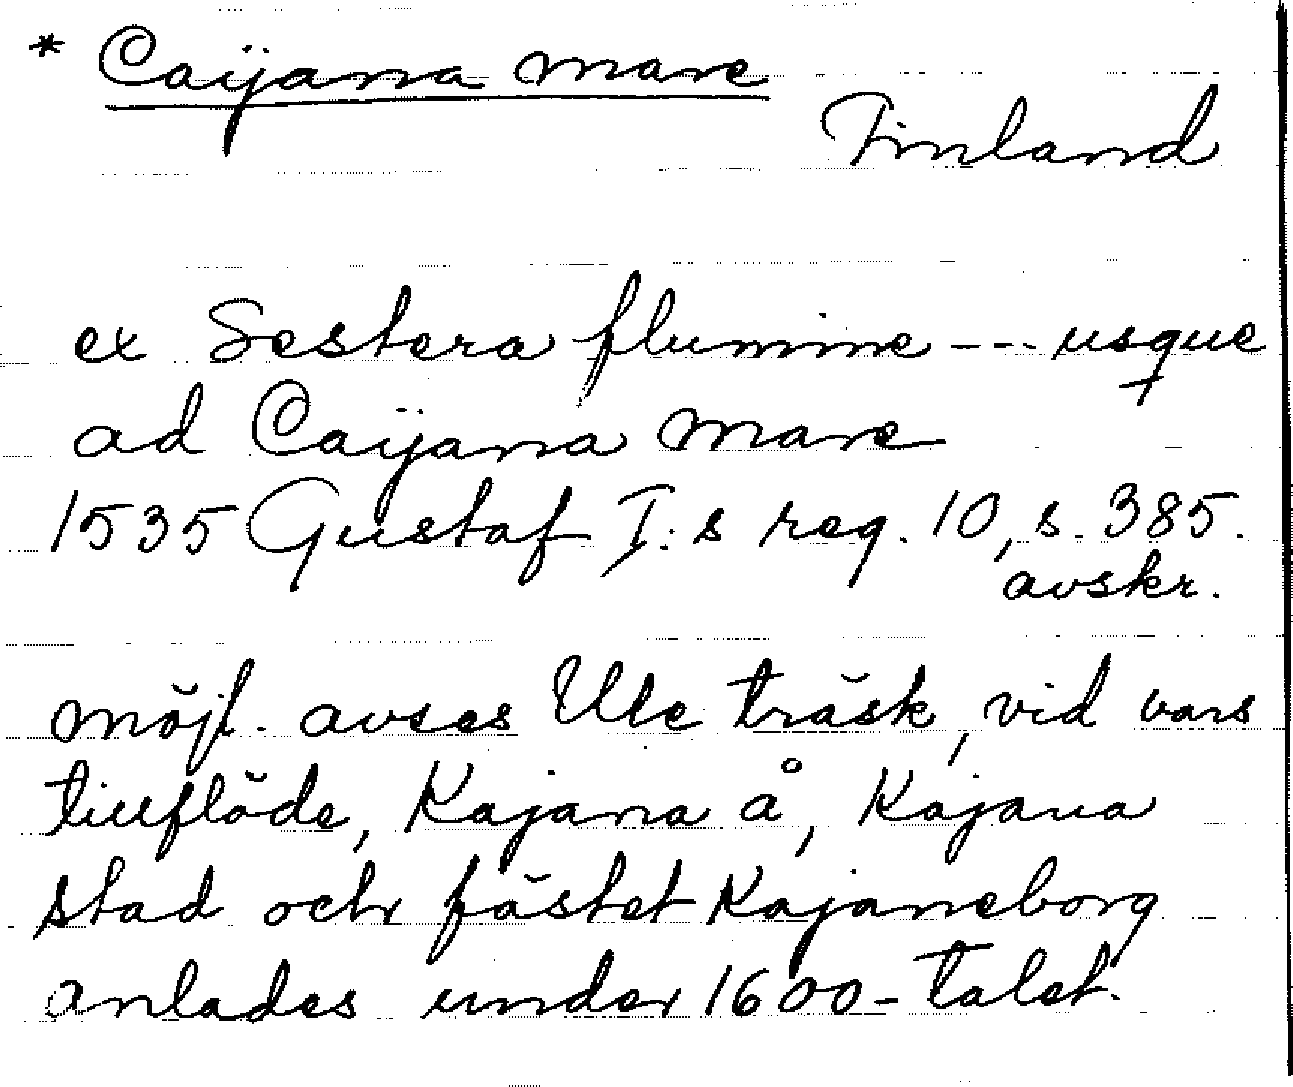 * Caÿana mare
Finland
ex Sestera flumine --- usque
ad Caÿana mare
1535 Gustaf I:s reg. 10, s. 385.
avskr.
möjl. avses Ule träsk, vid vars
tillflöde, Kajana å, Kajana
stad och fästet Kajaneborg
anlades under 1600-talet.